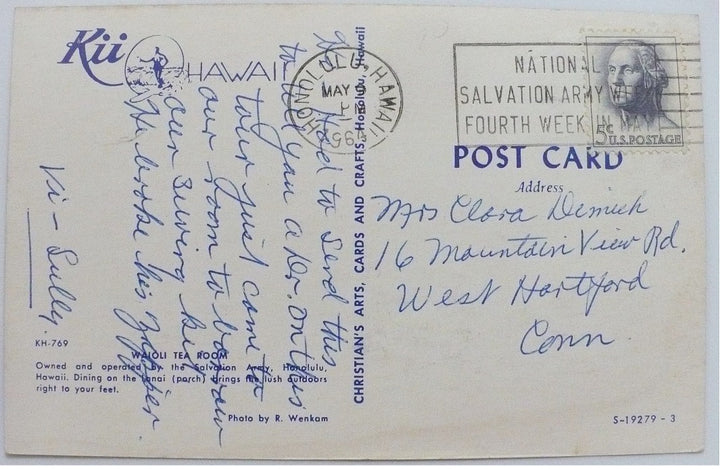 Kii
HAWAII
Had to send this
to tell you a Dr. on this
tour just came to
our room to borrow
our sewing kit
He broke his zipper.
Vi - Sully.
KH-769
WAIOLI TEA ROOM
Owned and operated by the Salvation Army, Honolulu,
Hawaii. Dining on the lanai (porch) brings the lush outdoors
right to your feet.
Photo by R. Wenkam
CHRISTIAN'S ARTS, CARDS AND CRAFTS, Honolulu, Hawaii
HONOLULU, HAWAII
MAY
NATIONAL
SALVATION ARMY WEEK
FOURTH WEEK IN MAY
5c U.S. POSTAGE
POST CARD
Address
Mrs Clara
16 Mountain View Rd.
West Hartford
Conn.
S-19279-3